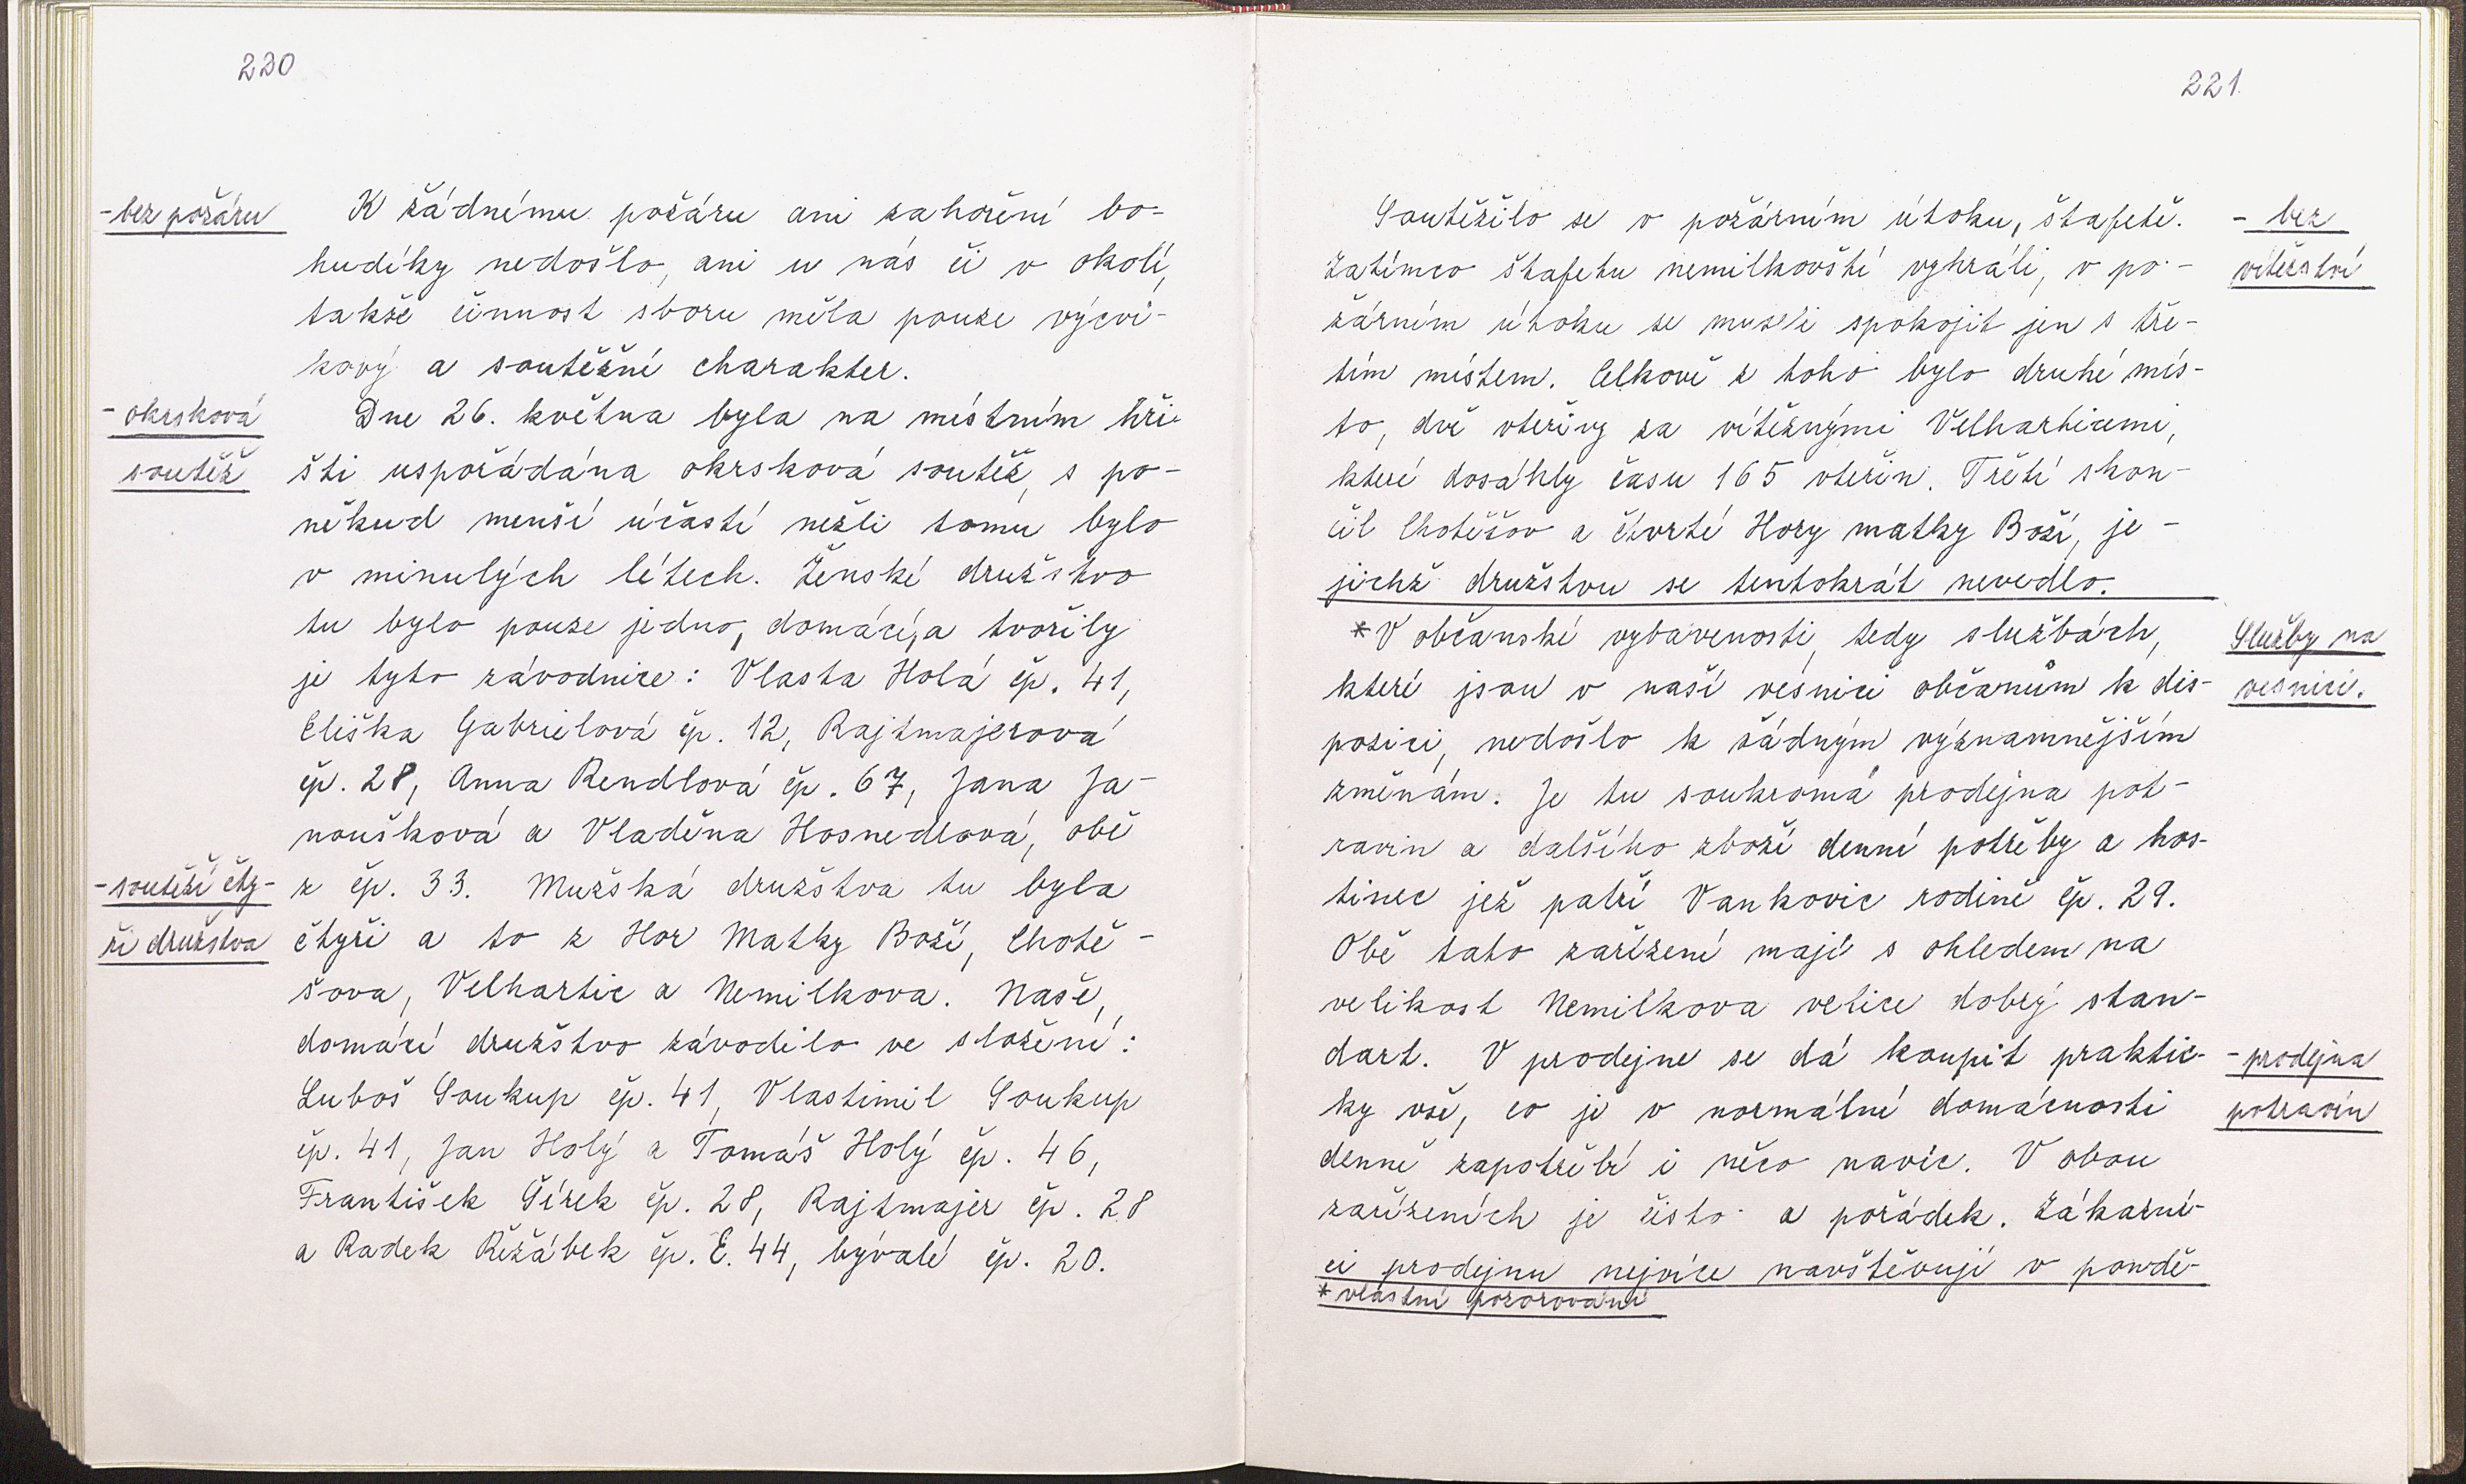 220
- bez požáru
K žádnému požáru ani zahoření bo-
hudíky nedošlo, ani u nás či v okolí,
takže činnost sboru měla pouze výcvi-
kový a soutěžní charakter.
- okrsková
soutěž
Dne 26. května byla na místním hři-
šti uspořádána okrsková soutěž, s po-
někud menší účastí nežli tomu bylo
v minulých létech. Ženské družstvo
tu bylo pouze jedno, domácí, a tvořily
je tyto závodnice: Vlasta Holá čp. 41,
Eliška Gabrielová čp. 12, Rajtmajerová
čp. 28, Anna Rendlová čp. 67, Jana Ja-
noušková a Vladěna Hosnedlová, obě
- soutěží čty-
ři družstva
z čp. 33. Mužská družstva tu byla
čtyři a to z Hor Matky Boží, Chotě-
šova, Velhartic a Nemilkova. Naše,
domácí družstvo závodilo ve složení:
Luboš Soukup čp. 41, Vlastimil Soukup
čp. 41, Jan Holý a Tomáš Holý čp. 46,
František Šírek čp. 28, Rajtmajer čp. 28
a Radek Řežábek čp. E. 44, bývalé čp. 20.
221
Soutěžilo se v požárním útoku, štafetě.
Zatímco štafetu nemilkovští vyhráli, v po-
žárním útoku se museli spokojit jen s tře-
tím místem. Celkově z toho bylo druhé mís-
to, dvě vteřiny za vítěznými Velharticemi,
které dosáhly času 165 vteřin. Třetí skon-
čil Chotěšov a čtvrté Hory matky Boží, je-
jichž družstvu se tentokrát nevedlo.
- bez
vítězství
* V občanské vybavenosti, tedy službách,
které jsou v naší vesnici občanům k dis-
pozici, nedošlo k žádným významnějším
změnám. Je tu soukromá prodejna pot-
ravin a dalšího zboží denní potřeby a hos-
tinec jež patří Vankovic rodině čp. 29.
Obě tato zařízení mají s ohledem na
velikost Nemilkova velice dobrý stan-
dart. V prodejne se dá koupit praktic-
ky vše, co je v normální domácnosti
denně zapotřebí i něco navíc. V obou
zařízeních je čisto a pořádek. Zákazní-
ci prodejnu nejvíce navštěvují v pondě-
Služby na
vesnici.
- prodejna
potravin
* vlastní pozorování